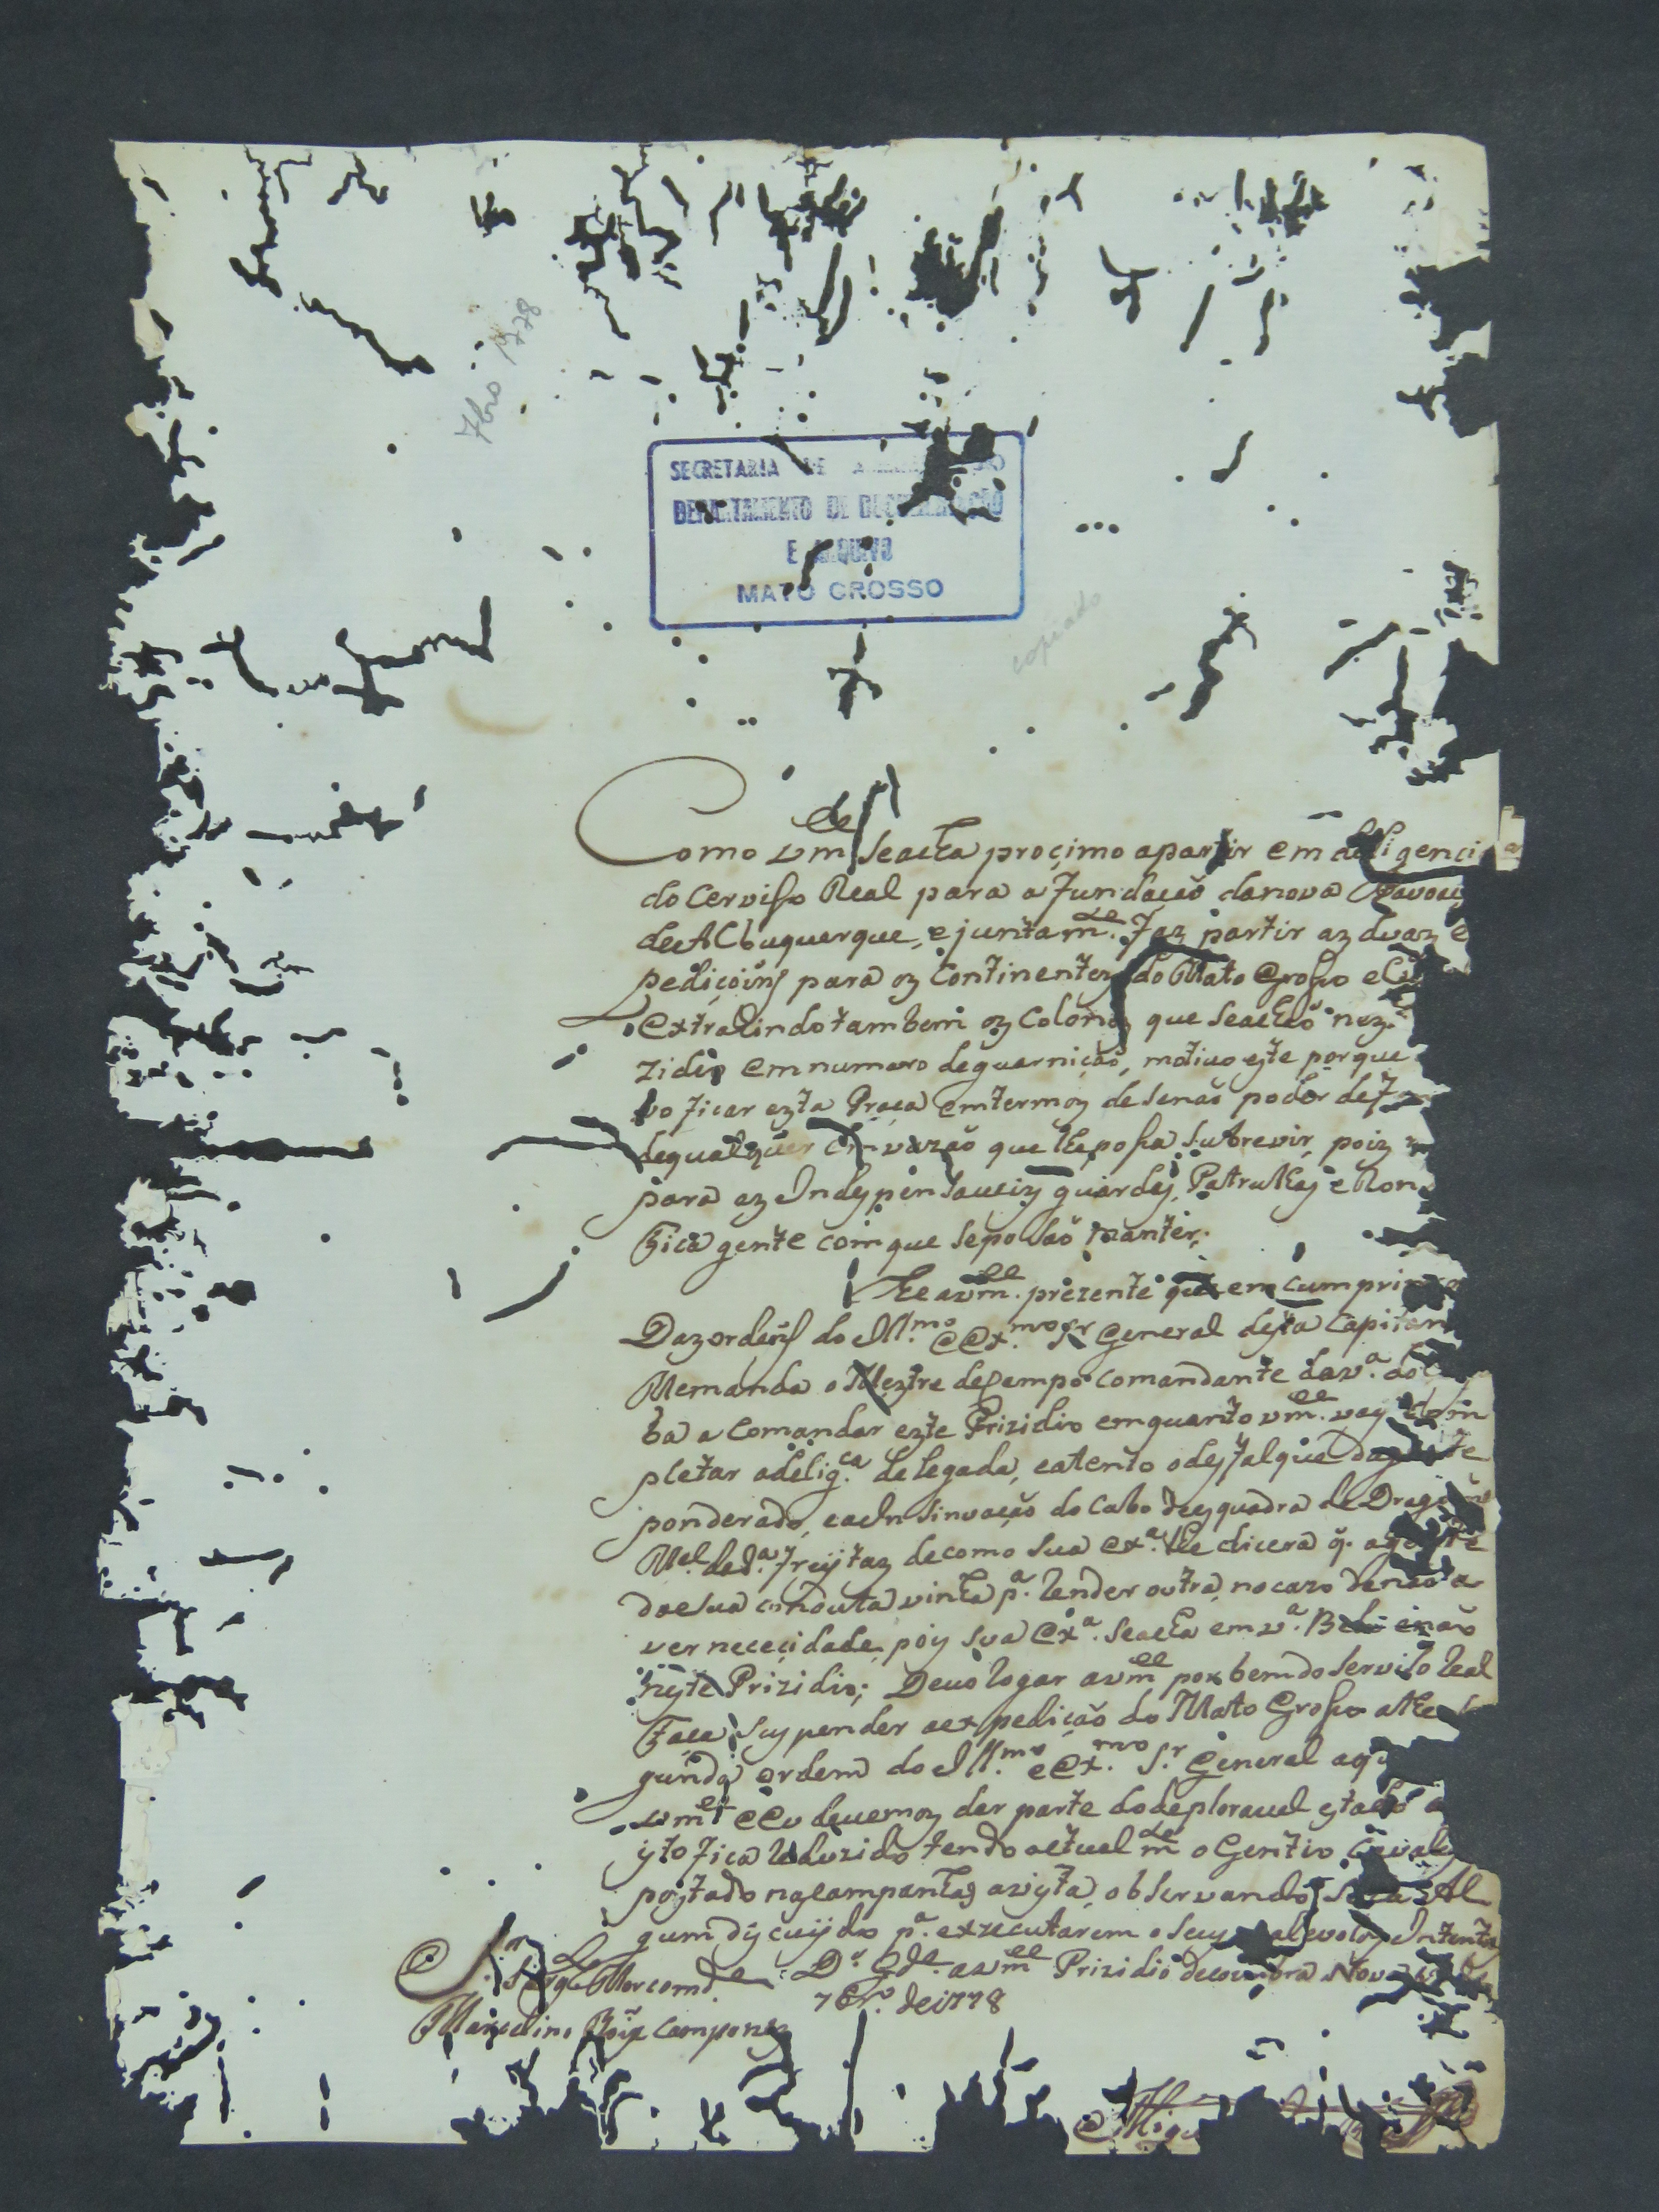 7bro 1778
SECRETARIA DE
DEPARTAMENTO DE DOCUMENTAÇÃO
E ARQUIVO
MATO GROSSO
copiado
Como vm.ce Seacha proçimo apartir em deligenci
do Cervisso Real para a Fundação danova
de Albuquerque, e juntam.te Faz partir az duaz e
pediçoins para oz Continentez do Mato Grosso e
extrahindo tambem oz Colonoz que Seachão nez
zidio em numaro deguarnição, motivo este porque
vo ficar ezta Praça emtermoz deSenão poder def
dequalquer envazão que lhepossa Subrevir, poiz
para az Indispensaveiz guardas, Patrulhas e Ron
Fica gente comque Sepossão manter.
He avm.ce prezente que em cumpri
Dazordens do Ill.mo e Ex.mo Sr General desta Capitan
Memanda o Meztre deCampo Comandante dav.a do
ba a Comandar ezte Prizidio emquanto vm.ce vay com
pletar adelig.ca delegada, eatento odesfalque
ponderado, eaInSinvação do Cabo deesquadra de Drago
M.el Freijtaz decomo Sua Ex.a lhe dicera q. agente
daesua conduta vinha p.a Render outra, nocazo denão a
ver neceçidade, pois Sua Ex.a Seacha em v.a Bela enão
neste Prizidio; Devo Rogar avm.ce por bem do Serviso Real
Faça Suspender aexpedição do Mato Grosso athe
gunda ordem do Ill.mo e Ex.mo S.r General aq
vm.ce eEu devemoz dar parte dodeploravel estado a
isto fica Reduzido tendo actualm.te o Gentio Cavale
postado nas campanhas avista, observando Al
gum discuijdo p.a executarem o Seus malevolos Intentos
D.s G.de avm.ce Prizidio decoimbra Nova
7br.o de 1778
S.r Sarg.to Mor comd.e
Marcelino Roiz Camponez
Migu